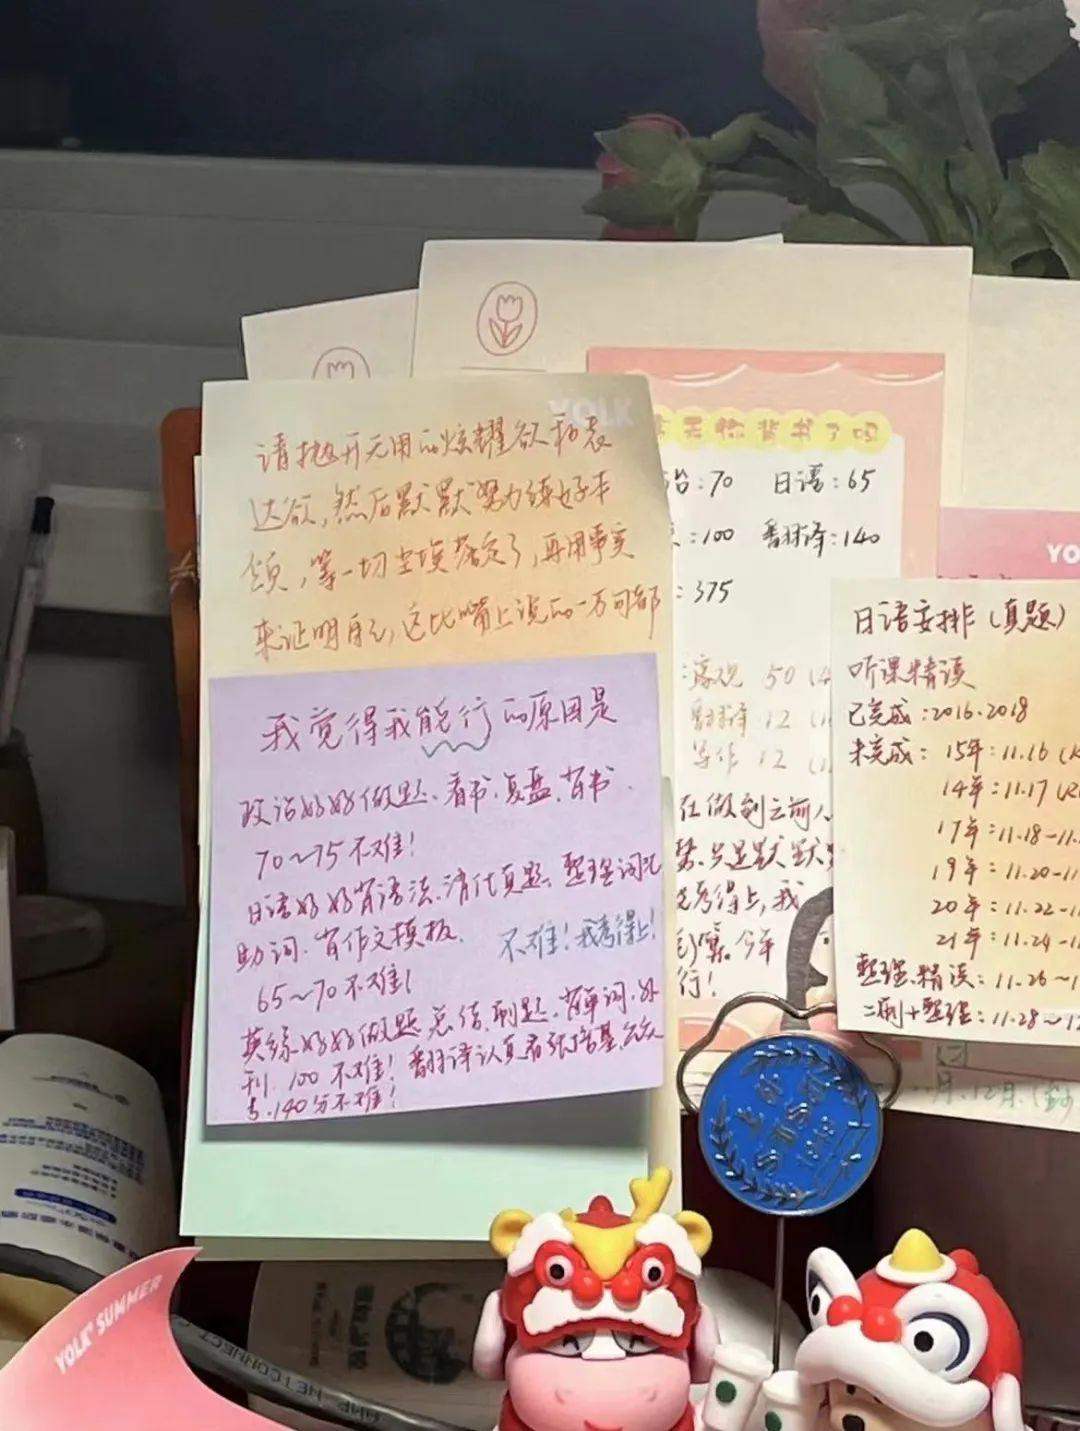 YOLK
请抛开无用的炫耀欲和表
达欲，然后默默努力练好本
领，等一切尘埃落定了，再用事实
来证明自己，这比嘴上说的一万句都
我觉得我能行的原因是
政治好好做题、看书、复盘、背书.
70～75不难！
日语好好背语法、清仕真题、整理词汇
助词、背作文模板.
不难！我考得上！
65～70不难！
英综好好做题、总结、刷题、背单词、外
刊. 100不难！翻译认真看张培基、
140分不难！
天你背书了吗
治：70 日语：65
：100 翻译：140
：375
客观 50
翻译 12
写作 12
在做别云前人
梦、只是默默
考得上，我
嘿。今年
行！
YO
日语安排（真题）
听课精读
已完成：2016.2018
未完成：15年：11.16
14年：11.17
17年：11.18-11.
19年：11.20-11
20年：11.22-1
21年：11.24-1
整理、精读：11.26～1
二刷+整理：11.28～12
月、12月、
YOLK SUMMER